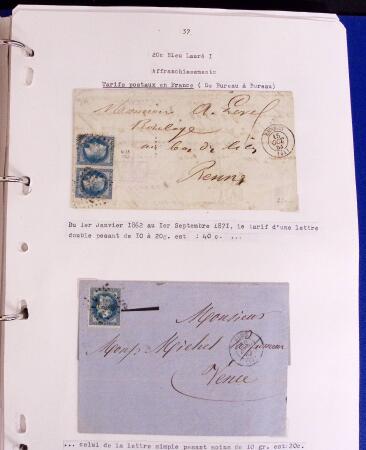 37
20c Bleu Lauré I
Affranchissements
Tarifs postaux en France ( De Bureau à Bureau)
Monsieur A.
Rennes
Du 1er Janvier 1862 au 1er Septembre 1871, le tarif d'une lettre
double pesant de 10 à 20g. est : 40 c. ...
Monsieur
Michel Parfumeur
Vence
... celui de la lettre simple pesant moins de 10 gr. est:20c.